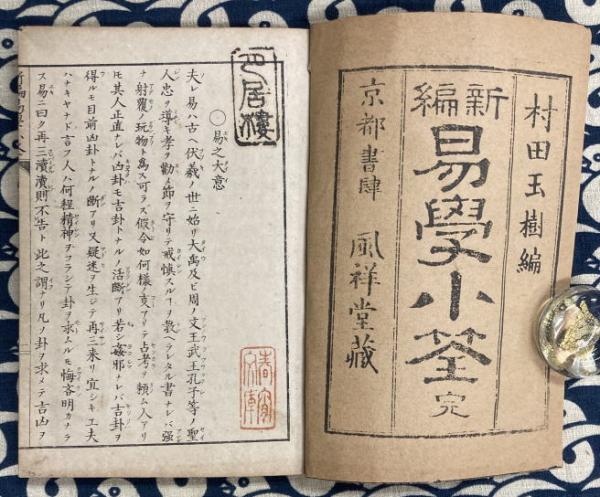 村田玉樹編
新編
易學小筌 完
京都書肆 風祥堂藏
○易之大意
夫レ易ハ古ヘ伏羲ノ世ニ始リ大禹及ビ周ノ文王武王孔子等ノ聖
人忠ヲ導キ孝ヲ勸メ節ヲ守リテ戒慎スルヿヲ敎ヘタル書ナレバ强
ナ射覆ノ玩物ト為ス可ラズ假令如何樣ノ叓アリテ占考ヲ頼ム人アリ
モ其人正直ナレバ凶卦モ吉卦トナルノ活斷アリ若シ姦邪ナレバ吉卦ヲ
得ルモ目前凶卦トナルノ斷アリ又疑迷ヲ生ジテ再三来リ宜シキ工夫
ハナキヤナド言フ人ハ何程精神ヲコラシア卦ヲ求ムルモ悔吝明カナラ
ス易ニ曰ク再三瀆瀆則不告ト此之謂ナリ凡ソ卦ヲ求メテ吉凶ヲ